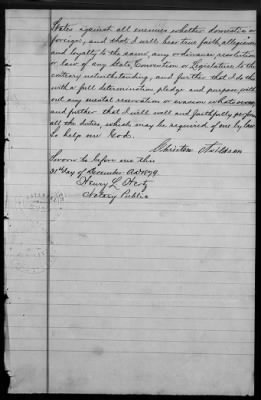 States against all enemies whether domestic or
foreign, and that I will bear true faith, allegiance
and loyalty to the same, any ordinance, resolution
or law of any State, Convention or Legislature to the
contrary notwithstanding, and further that I do this
with a full determination, pledge and purpose, with
out any mental reservation or evasion whatsoever,
and further that I will well and faithfully perform
all the duties, which may be required of me by law
So help me God.
Christen
Sworn to before me this
31st day of December A.D. 1879.
Henry L. Hertz
Notary Public